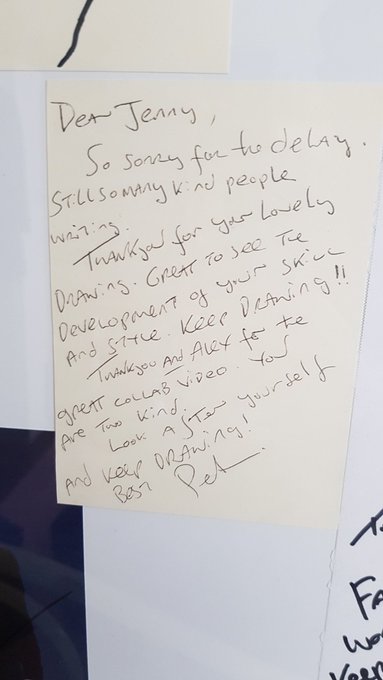 Dear Jenny,
So sorry for the delay.
Still so many kind people
writing.
Thankyou for your lovely
Drawing. Great to see the
Development of your skill
And style. Keep Drawing!!
Thankyou And Alex for the
great collab video. You
Are two kind.
Look after yourself
And keep Drawing!
Best Pet
Fa
Keep